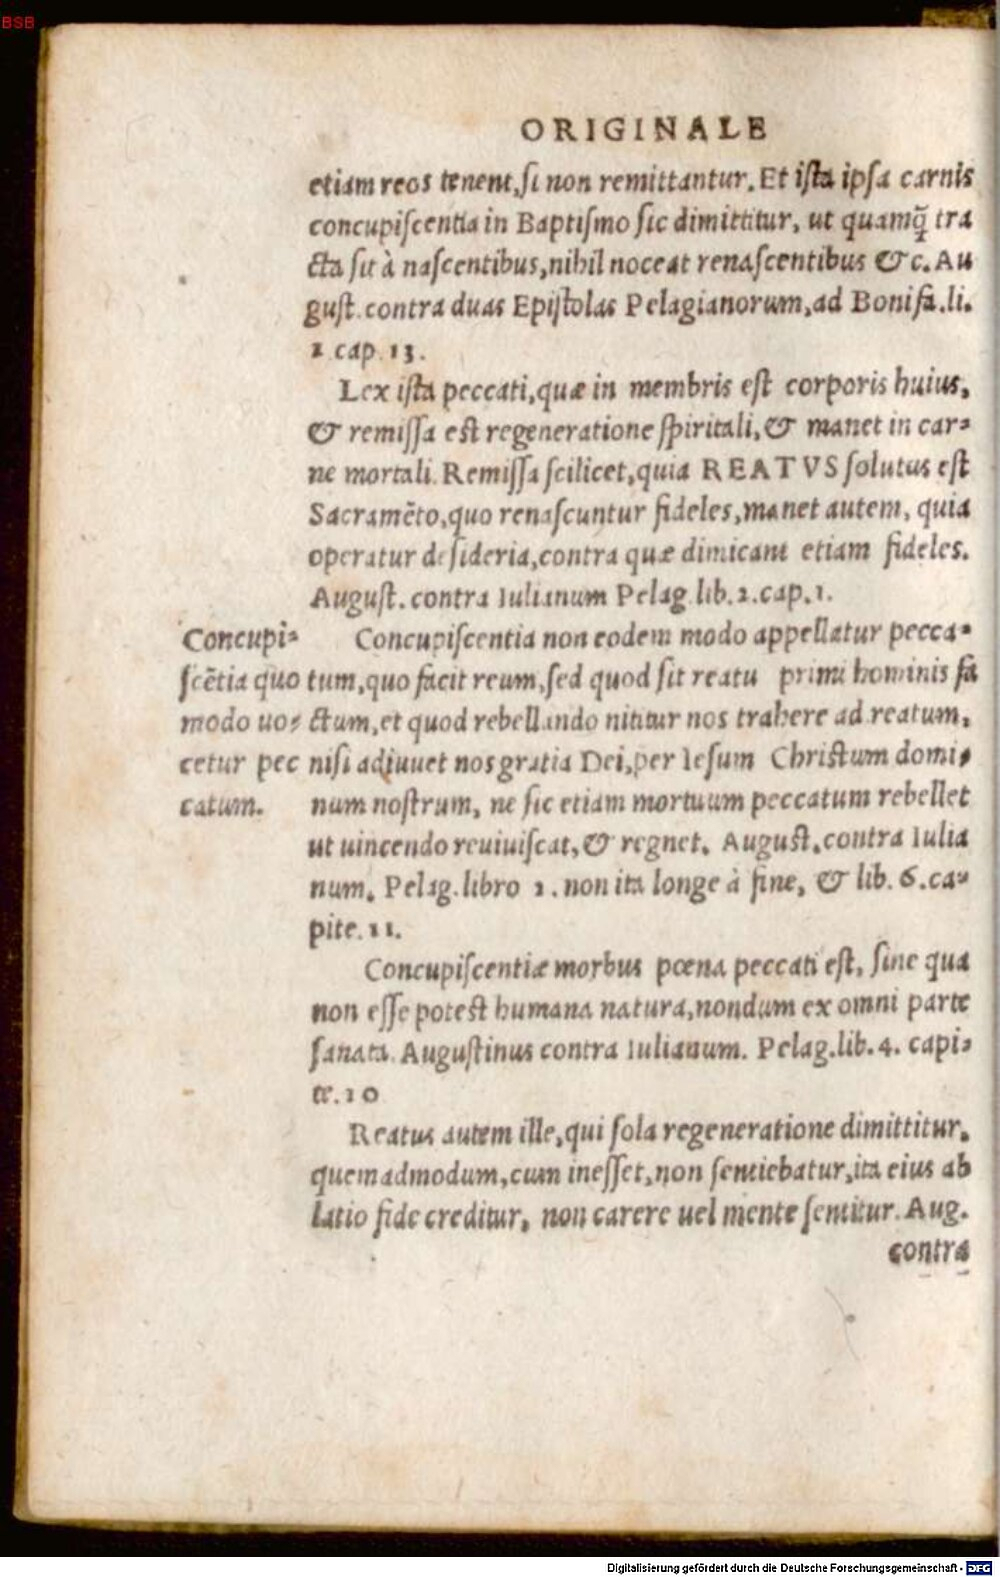 BSB
ORIGINALE
etiam reos tenent, si non remittantur. Et ista ipsa carnis
concupiscentia in Baptismo sic dimittitur, ut quamq̃ tra
cta sit à nascentibus, nihil noceat renascentibus &c. Au
gust. contra duas Epistolas Pelagianorum, ad Bonifa. li.
1 cap. 13.
Lex ista peccati, quæ in membris est corporis huius,
& remissa est regeneratione spiritali, & manet in car-
ne mortali. Remissa scilicet, quia REATVS solutus est
Sacramẽto, quo renascuntur fideles, manet autem, quia
operatur desideria, contra quæ dimicant etiam fideles.
August. contra Iulianum Pelag. lib. 2. cap. 1.
Concupiscentia non eodem modo appellatur pecca-
tum, quo facit reum, sed quod sit reatu primi hominis fa
ctum, et quod rebellando nititur nos trahere ad reatum,
nisi adiuuet nos gratia Dei, per Iesum Christum domi-
num nostrum, ne sic etiam mortuum peccatum rebellet
ut uincendo reuiuiscat, & regnet. August. contra Iulia
num. Pelag. libro 2. non ita longe à fine, & lib. 6. ca-
pite. 11.
Concupiscentiæ morbus pœna peccati est, sine qua
non esse potest humana natura, nondum ex omni parte
sanata. Augustinus contra Iulianum. Pelag. lib. 4. capi-
te. 10
Reatus autem ille, qui sola regeneratione dimittitur,
quemadmodum, cum inesset, non sentiebatur, ita eius ab
latio fide creditur, non carere uel mente sentitur. Aug.
contra
Concupi-
scẽtia quo
modo uo-
cetur pec
catum.
Digitalisierung gefördert durch die Deutsche Forschungsgemeinschaft - DFG